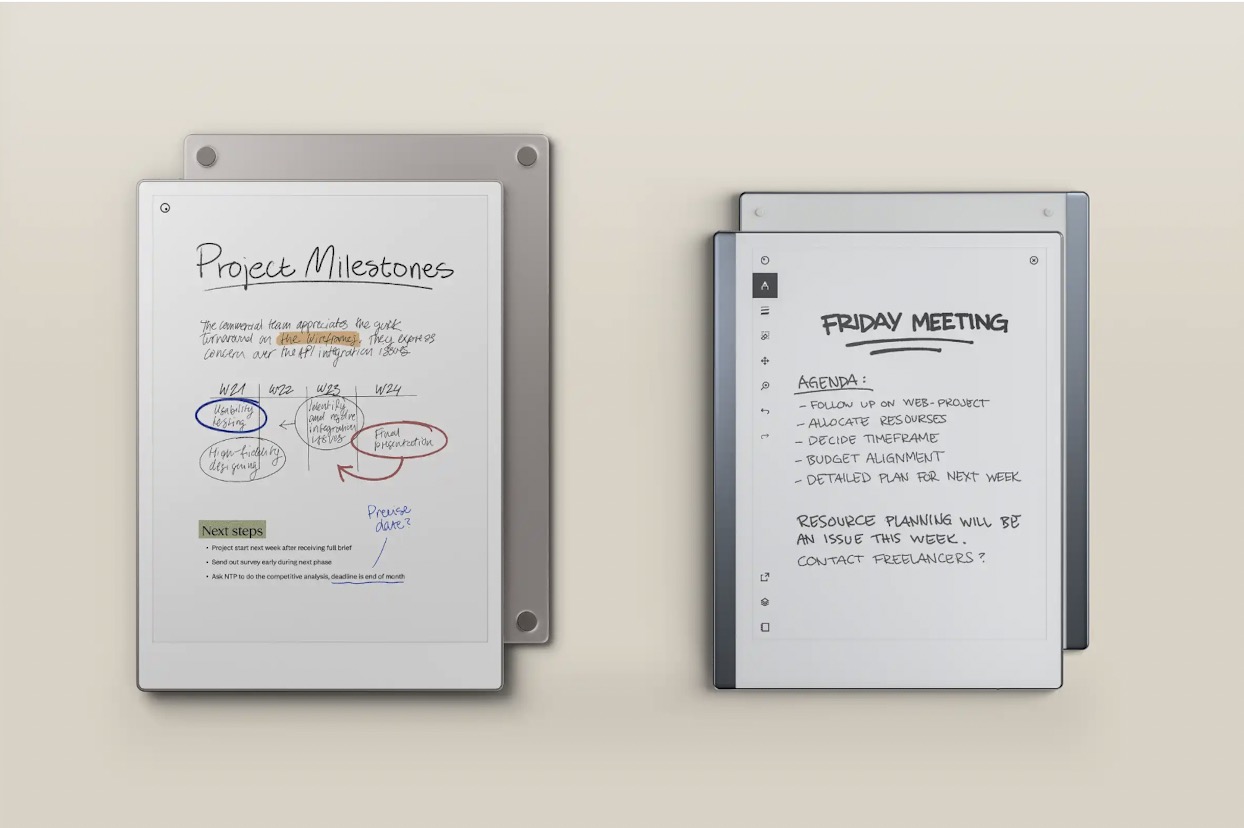 Project Milestones
The commercial team appreciates the quick
turnaround on the wireframes, they express
concern over the API integration issues
W21 W22 W23 W24
Usability
testing
Identify
and resolve
integration
issues
Final
presentation
High-fidelity
designing
Precise
date?
Next steps
• Project start next week after receiving full brief
• Send out survey early during next phase
• Ask NTP to do the competitive analysis, deadline is end of month
FRIDAY MEETING
AGENDA:
- FOLLOW UP ON WEB-PROJECT
- ALLOCATE RESOURSES
- DECIDE TIMEFRAME
- BUDGET ALIGNMENT
- DETAILED PLAN FOR NEXT WEEK
RESOURCE PLANNING WILL BE
AN ISSUE THIS WEEK.
CONTACT FREELANCERS?